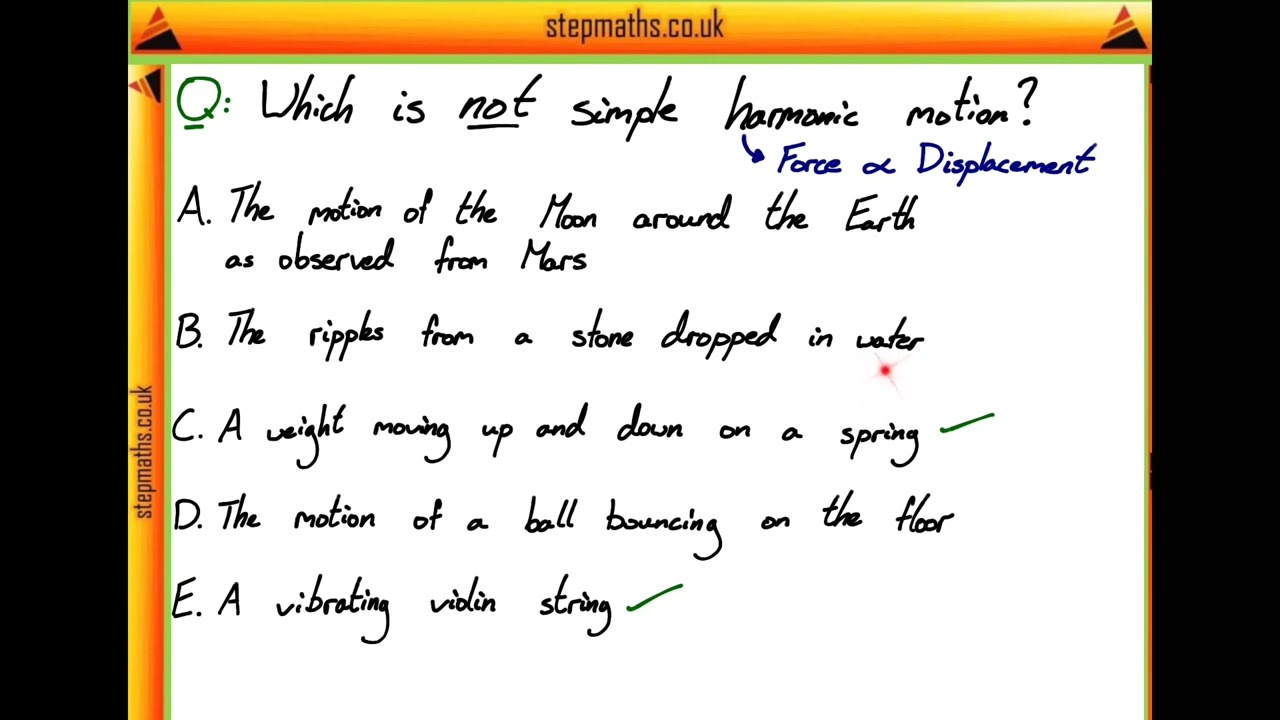 stepmaths.co.uk
Q: Which is not simple harmonic motion?
Force ∝ Displacement
A. The motion of the Moon around the Earth
as observed from Mars
B. The ripples from a stone dropped in water
C. A weight moving up and down on a spring
D. The motion of a ball bouncing on the floor
E. A vibrating violin string
stepmaths.co.uk